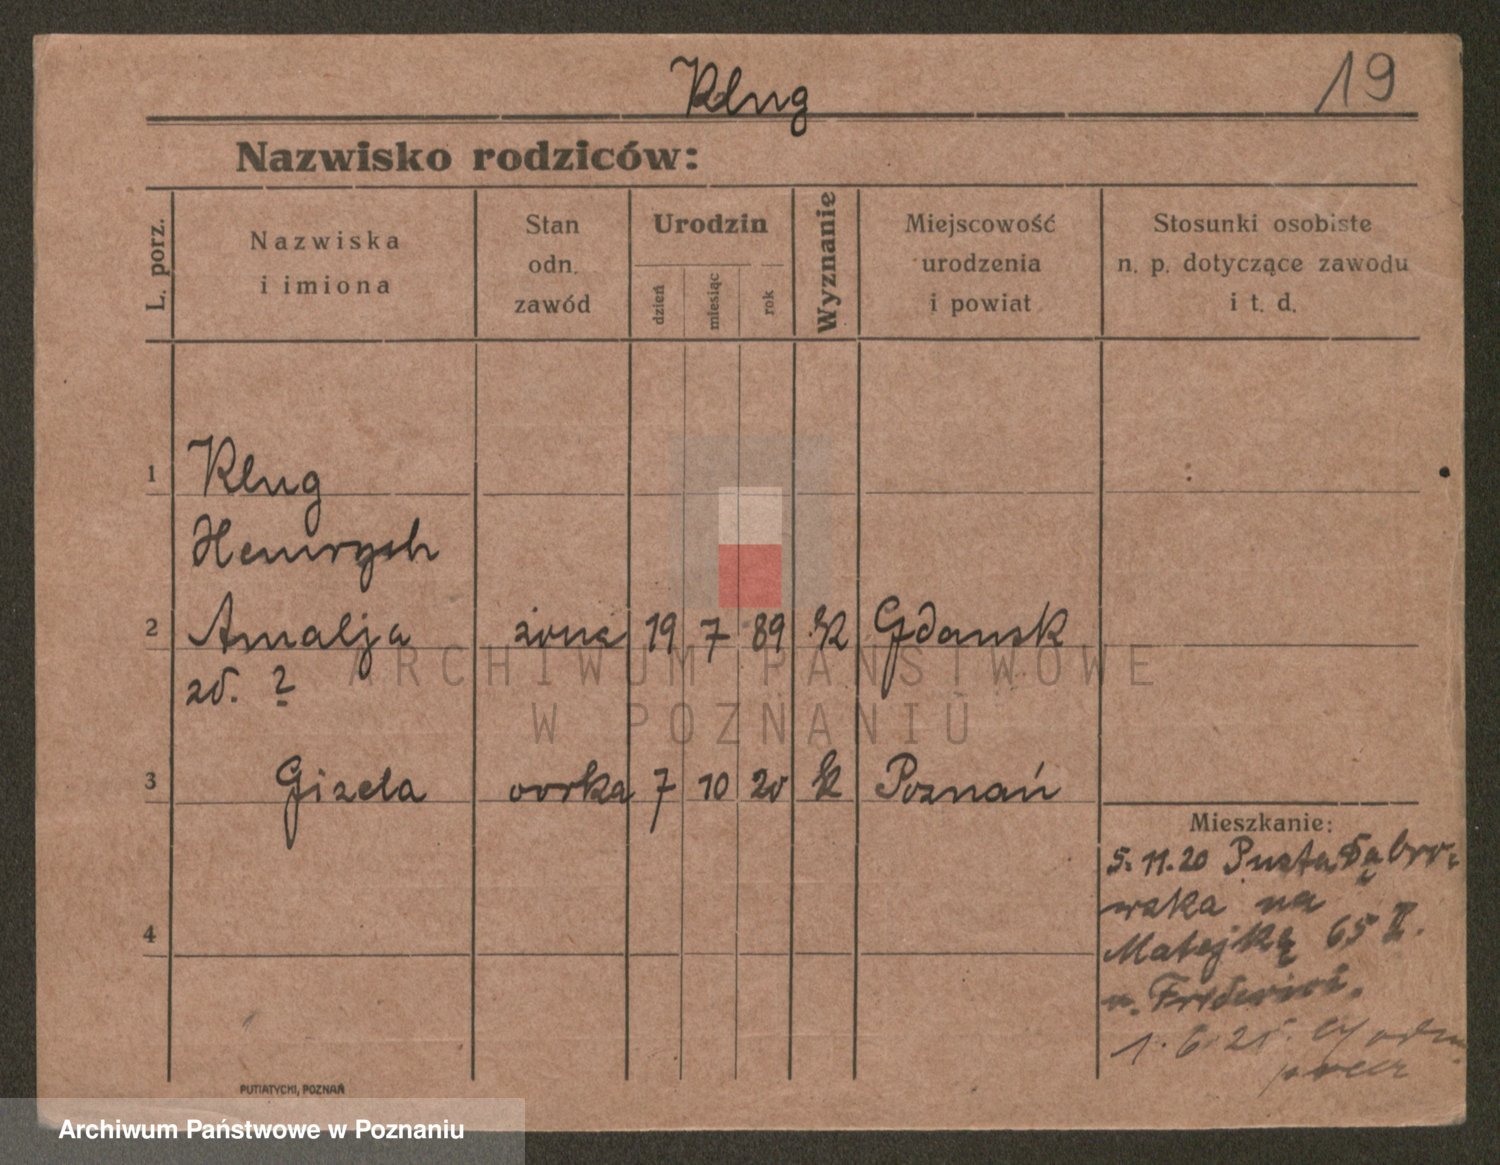 Klug
19
Nazwisko rodziców:
L. porz.
Nazwiska
i imiona
Stan
odn.
zawód
Urodzin
dzień
miesiąc
rok
Wyznanie
Miejscowość
urodzenia
i powiat
Stosunki osobiste
n. p. dotyczące zawodu
i t. d.
1 Klug
Henrych
2 Amalja żona 19 7 89 Gdansk
zd. ?
3 Gizela córka 7 10 20 k Poznań
Mieszkanie:
5. 11. 20
na
4 Matejkę 65 II.
1. 6. 21.
PUTIATYCKI, POZNAŃ
ARCHIWUM PAŃSTWOWE
W POZNANIU
Archiwum Państwowe w Poznaniu